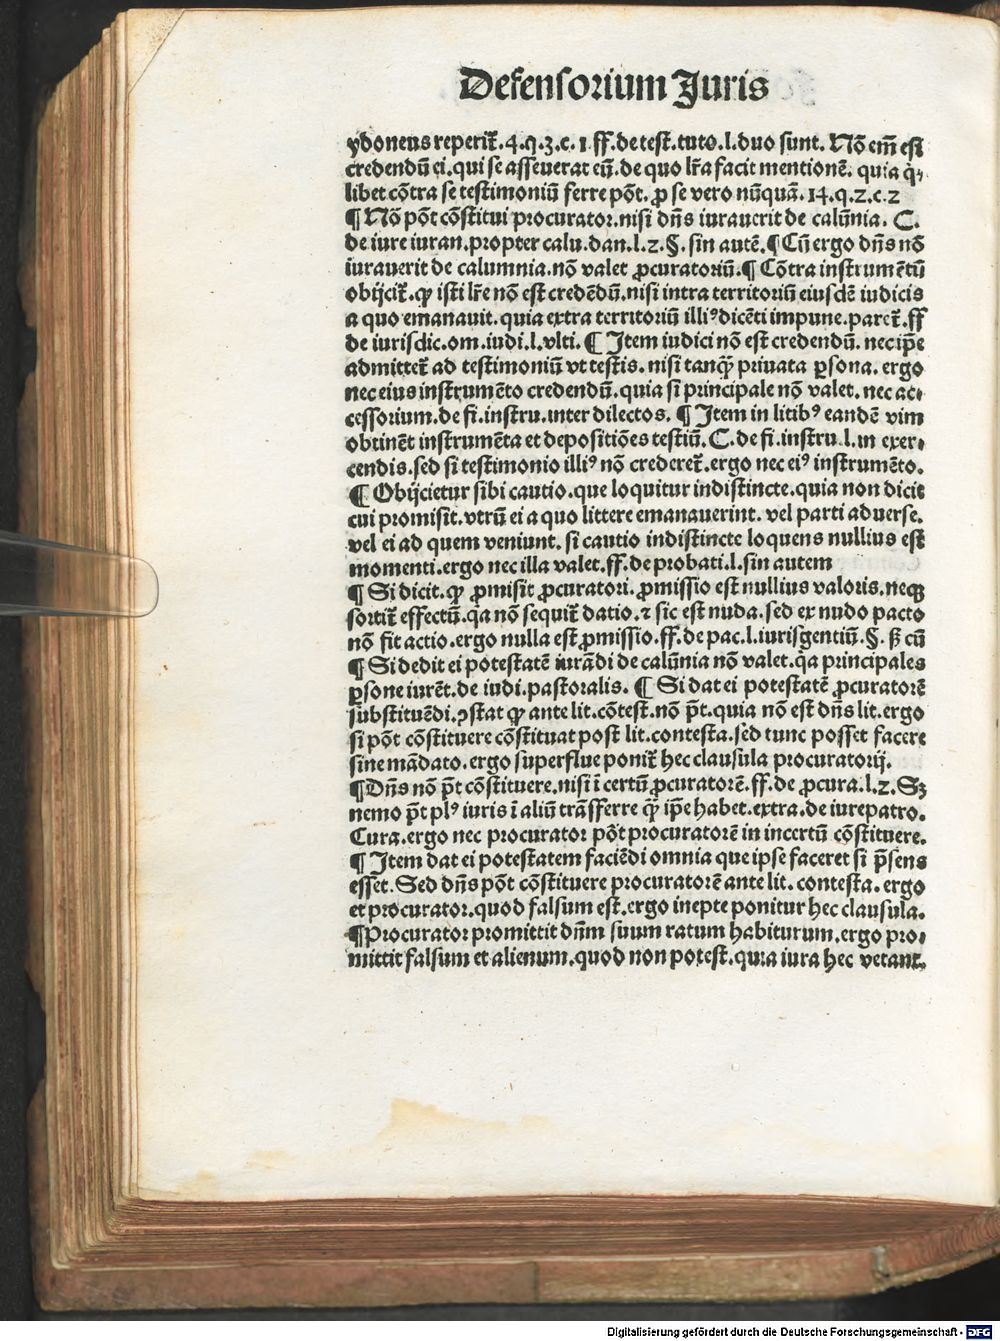 Defensorium Juris
ydoneus reperit̃.4.q.3.c.1.ff.de test̃.tuto.l.duo sunt. Nõ em̃ est
credendũ ei.qui se asseuerat eũ.de quo lr̃a facit mentionẽ. quia q̃-
libet cõtra se testimoniũ ferre põt. ꝓ se vero nũquã.14.q.2.c.2
¶ Nõ põt cõstitui procurator.nisi dñs iurauerit de calũnia. C.
de iure iuran.propter calu.dan.l.2.§. sin autẽ.¶ Cũ ergo dñs nõ
iurauerit de calumnia.nõ valet ꝓcuratoriũ.¶ Cõtra instrumẽtũ
obijcit̃. ꝙ isti lr̃e nõ est credẽdũ.nisi intra territoriũ eiusdẽ iudicis
a quo emanauit. quia extra territoriũ illiꝰ dicẽti impune.paret̃.ff
de iurisdic.om.iudi.l.vlti. ¶ Item iudici nõ est credendũ. nec ip̃e
admittet̃ ad testimoniũ vt testis. nisi tanꝙ̃ priuata ꝑsona. ergo
nec eius instrumẽto credendũ.quia si principale nõ valet. nec ac-
cessorium.de fi.instru.inter dilectos. ¶ Item in litibꝰ eandẽ vim
obtinẽt instrumẽta et depositiões testiũ. C. de fi.instru.l.in exer-
cendis.sed si testimonio illiꝰ nõ crederet̃.ergo nec eiꝰ instrumẽto.
¶ Obijcietur sibi cautio.que loquitur indistincte.quia non dicit
cui promisit.vtrũ ei a quo littere emanauerint. vel parti aduerse.
vel ei ad quem veniunt. si cautio indistincte loquens nullius est
momenti.ergo nec illa valet.ff.de probati.l.sin autem
¶ Si dicit. ꝙ ꝓmisit ꝓcuratori. ꝓmissio est nullius valoris.neqꝫ
sortit̃ effectũ.q̃a nõ sequit̃ datio. ⁊ sic est nuda. sed ex nudo pacto
nõ fit actio.ergo nulla est ꝓmissio. ff.de pac.l.iurisgentiũ.§. ß cũ
¶ Si dedit ei potestatẽ iurãdi de calũnia nõ valet.q̃a principales
ꝑsone iurẽt.de iudi.pastoralis. ¶ Si dat ei potestatẽ ꝓcuratorẽ
substituẽdi.ꝯstat ꝙ ante lit.cõtest.nõ p̃t.quia nõ est dñs lit.ergo
si põt cõstituere cõstituat post lit.contesta.sed tunc posset facere
sine mãdato.ergo superflue ponit̃ hec clausula procuratorij.
¶ Dñs nõ p̃t cõstituere.nisi ĩ certũ ꝓcuratorẽ.ff.de ꝓcura.l.2. Sꝫ
nemo p̃t plꝰ iuris ĩ aliũ trãsferre ꝙ̃ ip̃e habet.extra.de iurepatro.
Cura.ergo nec procurator põt procuratorẽ in incertũ cõstituere.
¶ Item dat ei potestatem faciẽdi omnia que ipse faceret si p̃sens
esset. Sed dñs põt cõstituere procuratorẽ ante lit. contesta. ergo
et procurator.quod falsum est.ergo inepte ponitur hec clausula.
¶ Procurator promittit dñm suum ratum habiturum.ergo pro-
mittit falsum et alienum.quod non potest.quia iura hec vetant.
Digitalisierung gefördert durch die Deutsche Forschungsgemeinschaft - DFG